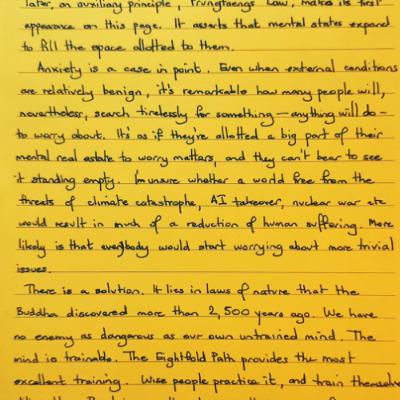 later, an auxiliary principle, Prungtaengs Law, makes its first
appearance on this page. It asserts that mental states expand
to fill the space allotted to them.
Anxiety is a case in point. Even when external conditions
are relatively benign, it's remarkable how many people will,
nevertheless, search tirelessly for something — anything will do —
to worry about. It's as if they're allotted a big part of their
mental real estate to worry matters, and they can't bear to see
it standing empty. I'm unsure whether a world free from the
threats of climate catastrophe, AI takeover, nuclear war etc
would result in much of a reduction of human suffering. More
likely is that everybody would start worrying about more trivial
issues.
There is a solution. It lies in laws of nature that the
Buddha discovered more than 2,500 years ago. We have
no enemy as dangerous as our own untrained mind. The
mind is trainable. The Eightfold Path provides the most
excellent training. Wise people practice it, and train themselves